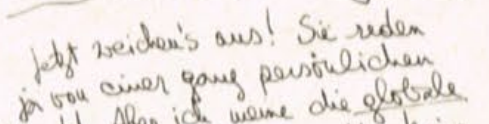 Jetzt weichen's aus! Sie reden
ja von einer ganz persönlichen
Aber ich meine die globale